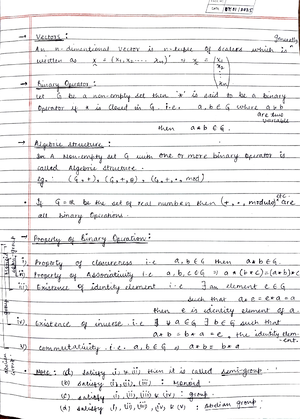 → Vectors :
generally
An n-dimentional vector is n-tuple of scalars which is
written as x = (x₁, x₂, ... xₙ)' or x = (x₁ x₂ : xₙ)
→ Binary Operator :
Let G be a non-empty set then '*' is said to be a binary
Operator if * is closed in G. i.e. a, b ∈ G where a & b
are two
variable
then a * b ∈ G.
→ Algebric structure :
In A Non-empty set G with one or more binary operator is
called Algebric structure.
• If G = R be the set of real number then (+, -, modulo) etc. are
all binary Operations.
→ Property of Binary Operation :
i) Property of closureness i.e a, b ∈ G then a * b ∈ G.
ii) Property of Associativity i.e a, b, c ∈ G ⇒ a * (b * c) = (a * b) * c
iii) Existence of identity element i.e ∃ an element e ∈ G
such that a * e = e * a = a
then e is identity element of a.
iv) Existence of inverse i.e if ∀ a ∈ G ∃ b ∈ G such that
a * b = b * a = e, the identity elem-
ent.
v) commutativity i.e. a, b ∈ G ⇒ a * b = b * a
• Note : (a) satisfy i & ii then it is called semi-group.
(b) satisfy i, ii, iii : Monoid
(c) satisfy i, ii, iii & iv : group.
(d) satisfy i, ii, iii, iv & v : abelian group.